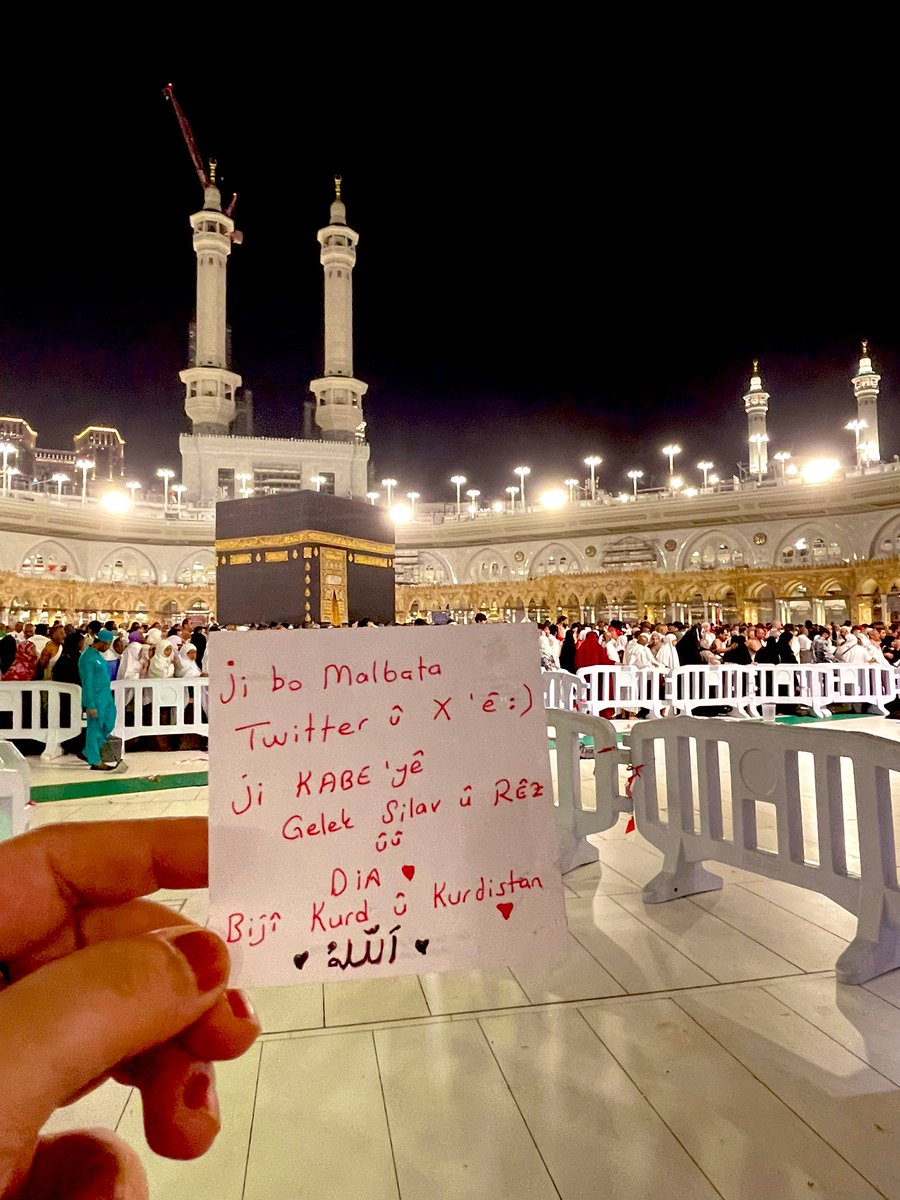 ji bo Malbata
Twitter û X 'ê :)
ji KABE 'yê
Gelek Silav û RÊz
ûû
DiA ♥
Bijî Kurd û Kurdistan ♥
♥ اَللّٰهُ ♥